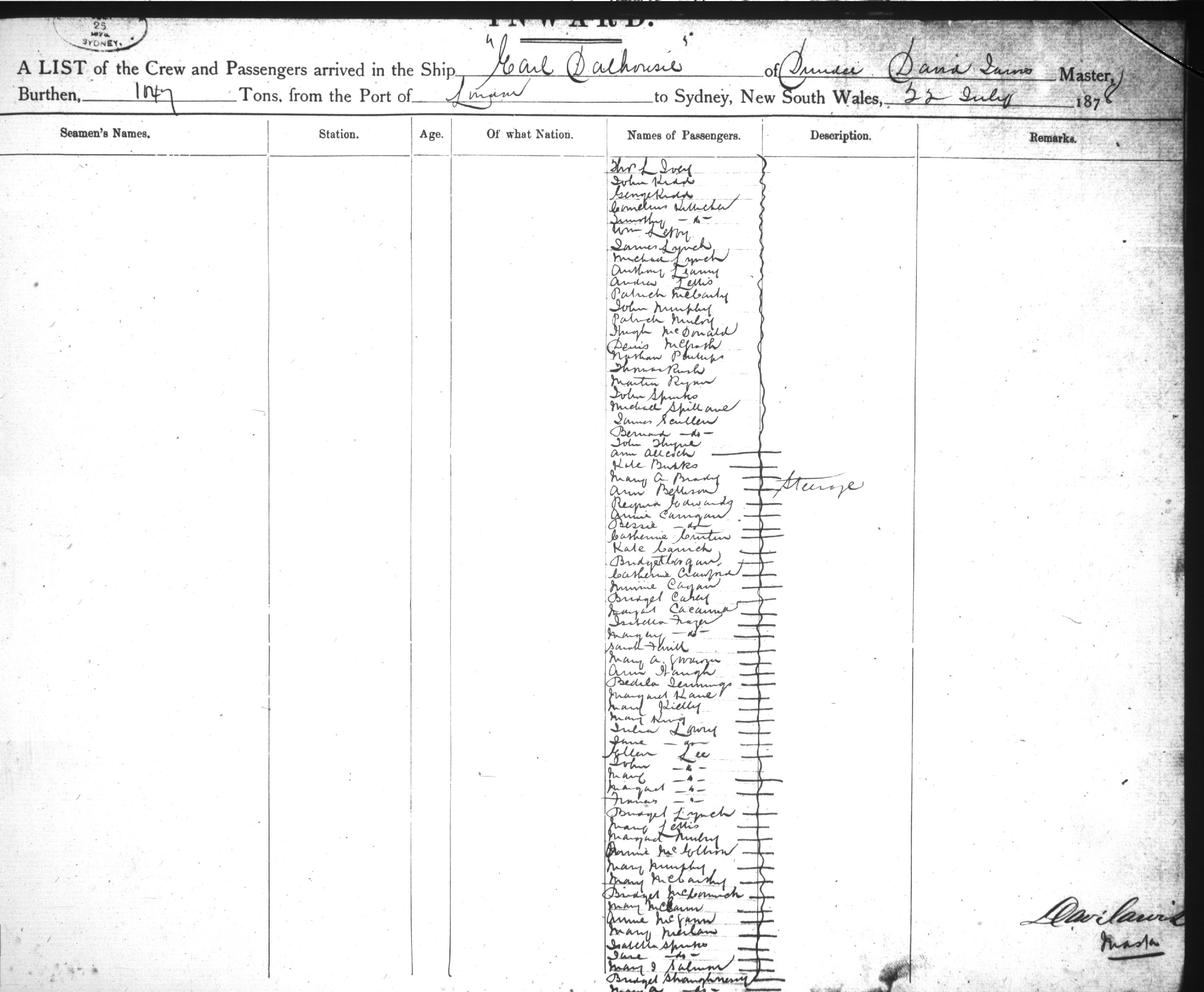 INWARD.
25
SYDNEY.
A LIST of the Crew and Passengers arrived in the Ship "Earl Dalhousie" of Dundee David Master,
Burthen, 1047 Tons, from the Port of London to Sydney, New South Wales, 22 July 1878
Seamen's Names. Station. Age. Of what Nation. Names of Passengers. Description. Remarks.
Thos L Ivey
John Kidd
George Kidd
Cornelius Kelleher
Timothy -do-
Wm Leroy
James Lynch
Michael Lynch
Anthony Leamy
Andrew Lettis
Patrick McCarty
John Murphy
Patrick Mulry
Hugh McDonald
Denis McGrath
Nathan Phillips
Thomas Rush
Martin Ryan
John Spinks
Michael Spillane
James Scullen
Bernard -do-
John Thyne
Ann Allcock
Kate Burke
Mary A Brady
Ann Bettison
Steerage
Regina Edwards
Annie Carrigan
Bessie -do-
Catherine Curtin
Kate
Bridget Corgan
Catherine Crawford
Minnie Cagan
Bridget Cahey
Margt
Isabella Frazer
Margery -do-
Sarah
Mary A.
Ann Haugh
Bedelia Jennings
Margaret Kane
Mary Kielly
Mary King
Julia Lowry
Jane -do-
Ellen Lee
John -do-
Mary -do-
Margaret -do-
Frances -do-
Bridget Lynch
Mary Lettis
Margaret Mulry
Mary Murphy
Mary McCarthy
Bridget McCormick
Mary McCann
Annie McGann
Mary
Isabella Spinks
Jane -do-
Mary J Salmon
Bridget Shaughnessy
Mary A -do-
Master